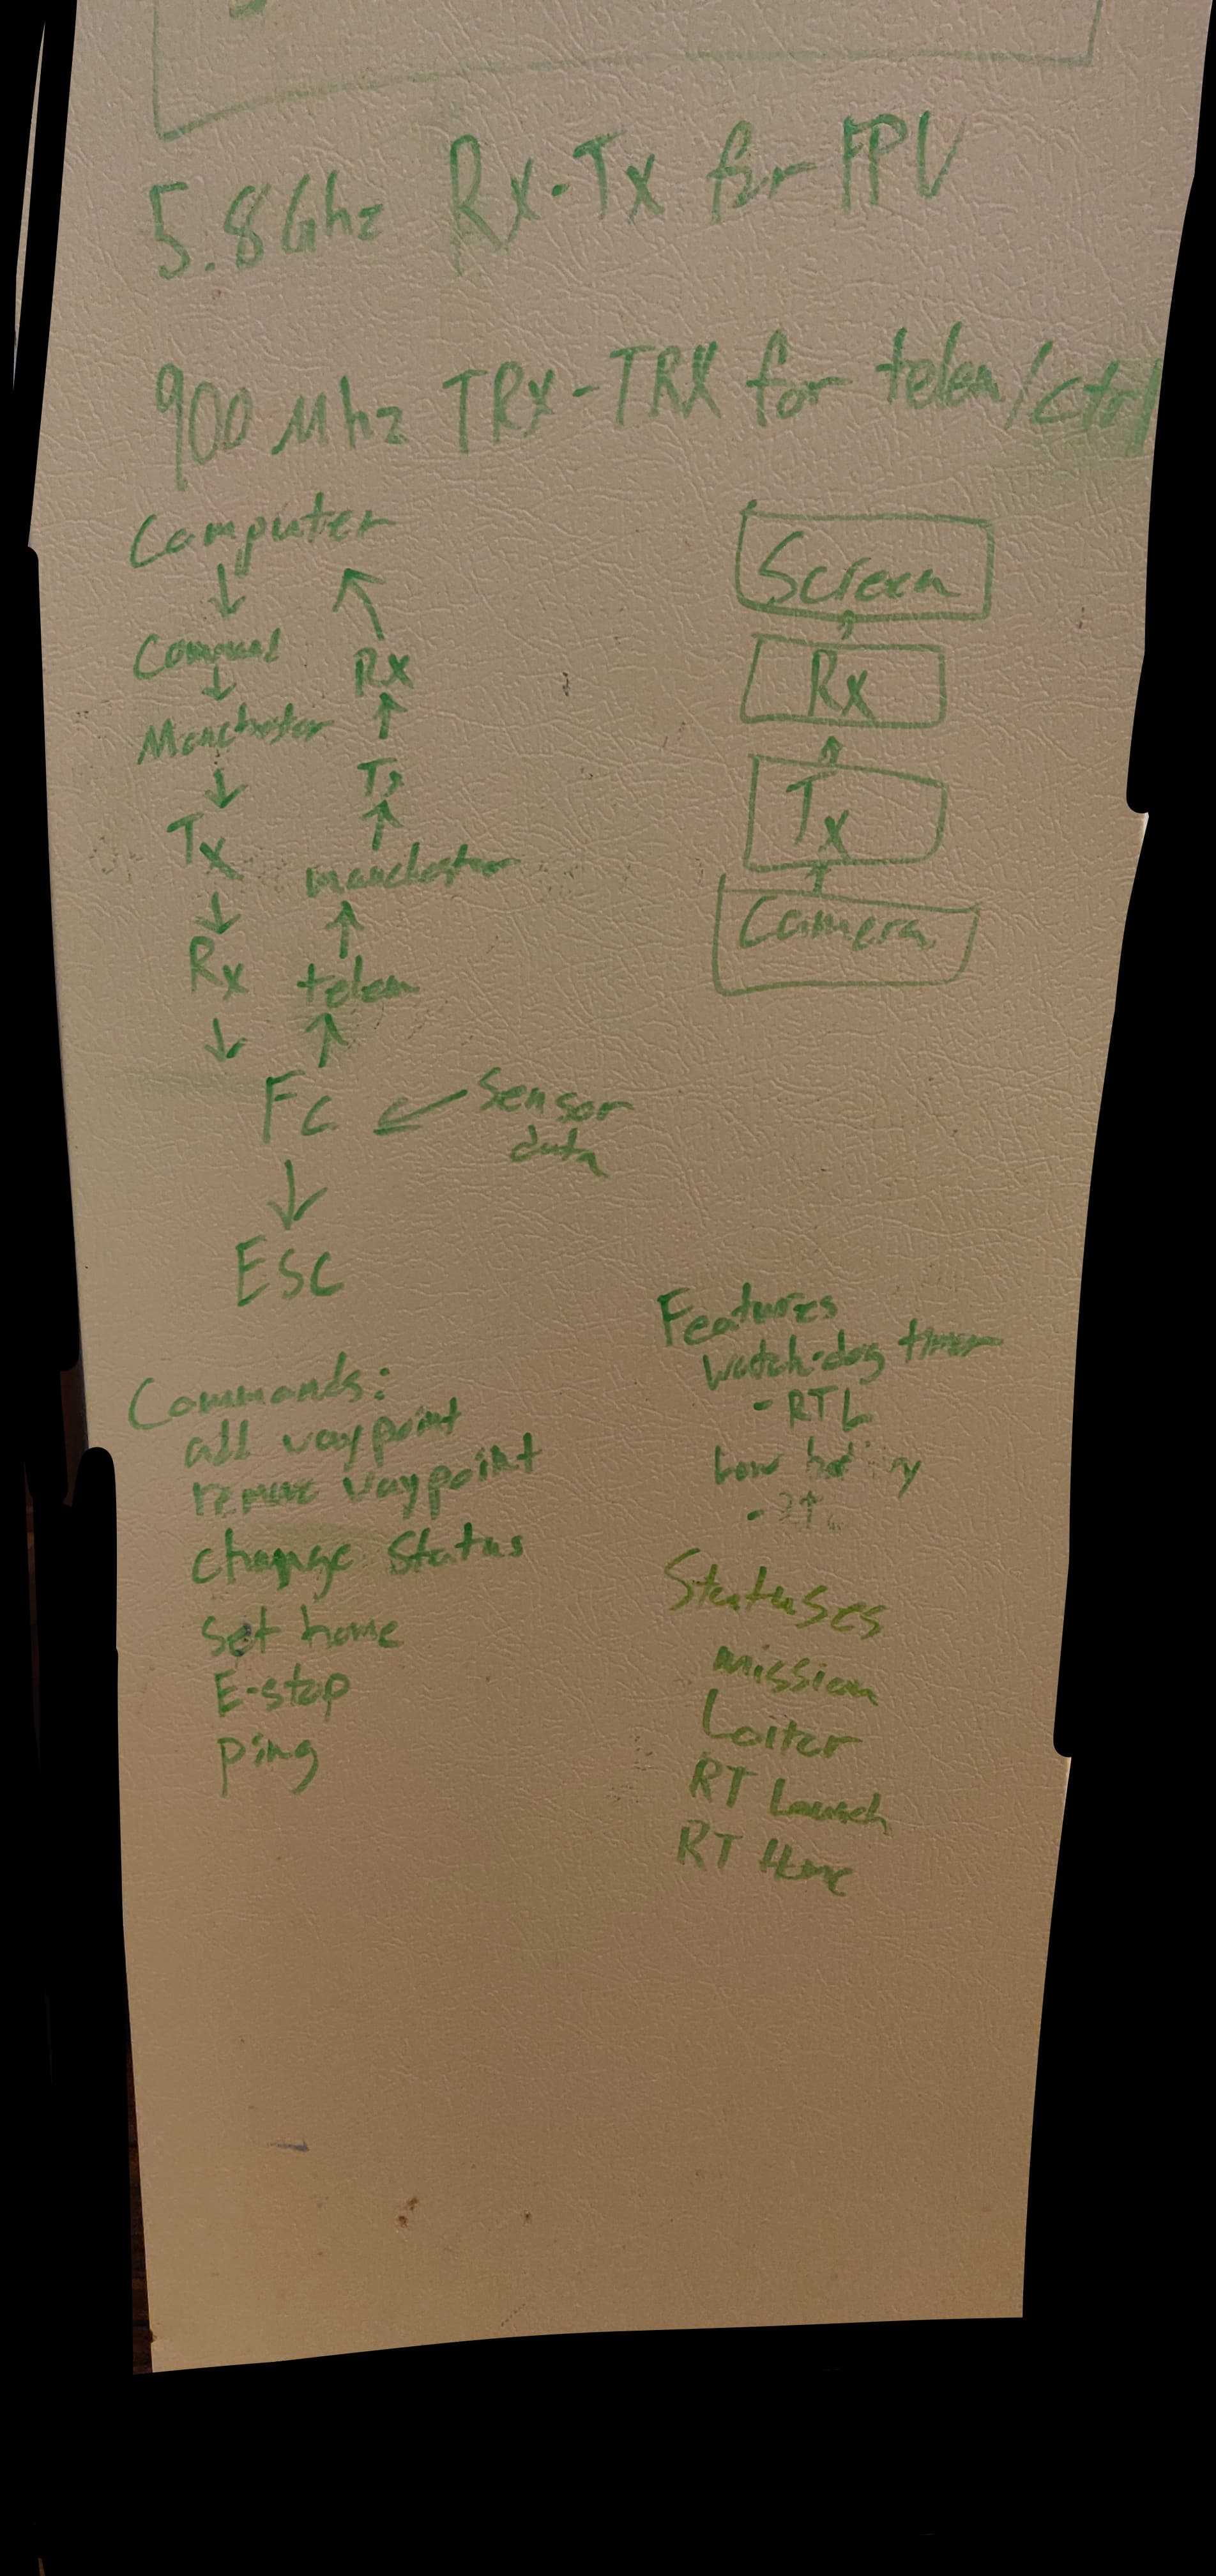 5.8Ghz Rx-Tx for FPV
900 Mhz TRx-TRX for telem/ctrl
Computer
Command
Manchester
Tx
Rx
FC
ESC
Rx
Tx
manchester
telem
Sensor
data
Screen
Rx
Tx
Camera
Commands:
add waypoint
remove waypoint
change Status
set home
E-stop
ping
Features
watch-dog timer
- RTL
Low battery
Statuses
mission
Loiter
RT Launch
RT Home